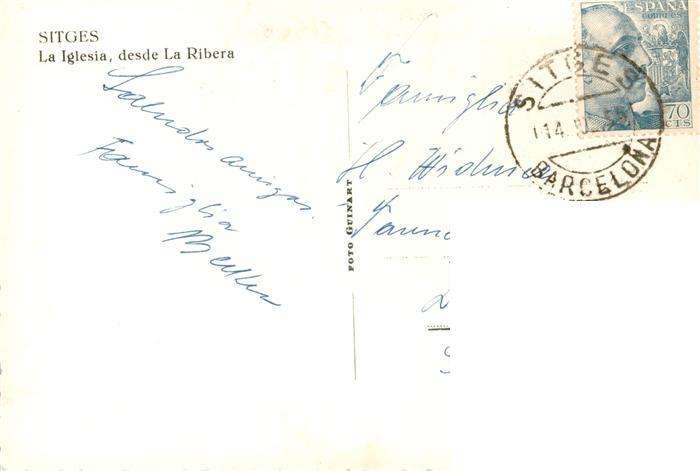 SITGES
La Iglesia, desde La Ribera
Saludos amigos.
Famiglia
FOTO GUINART
Famiglia
H.
ESPAÑA
CORREOS
70
CTS
SITGES
14
BARCELONA